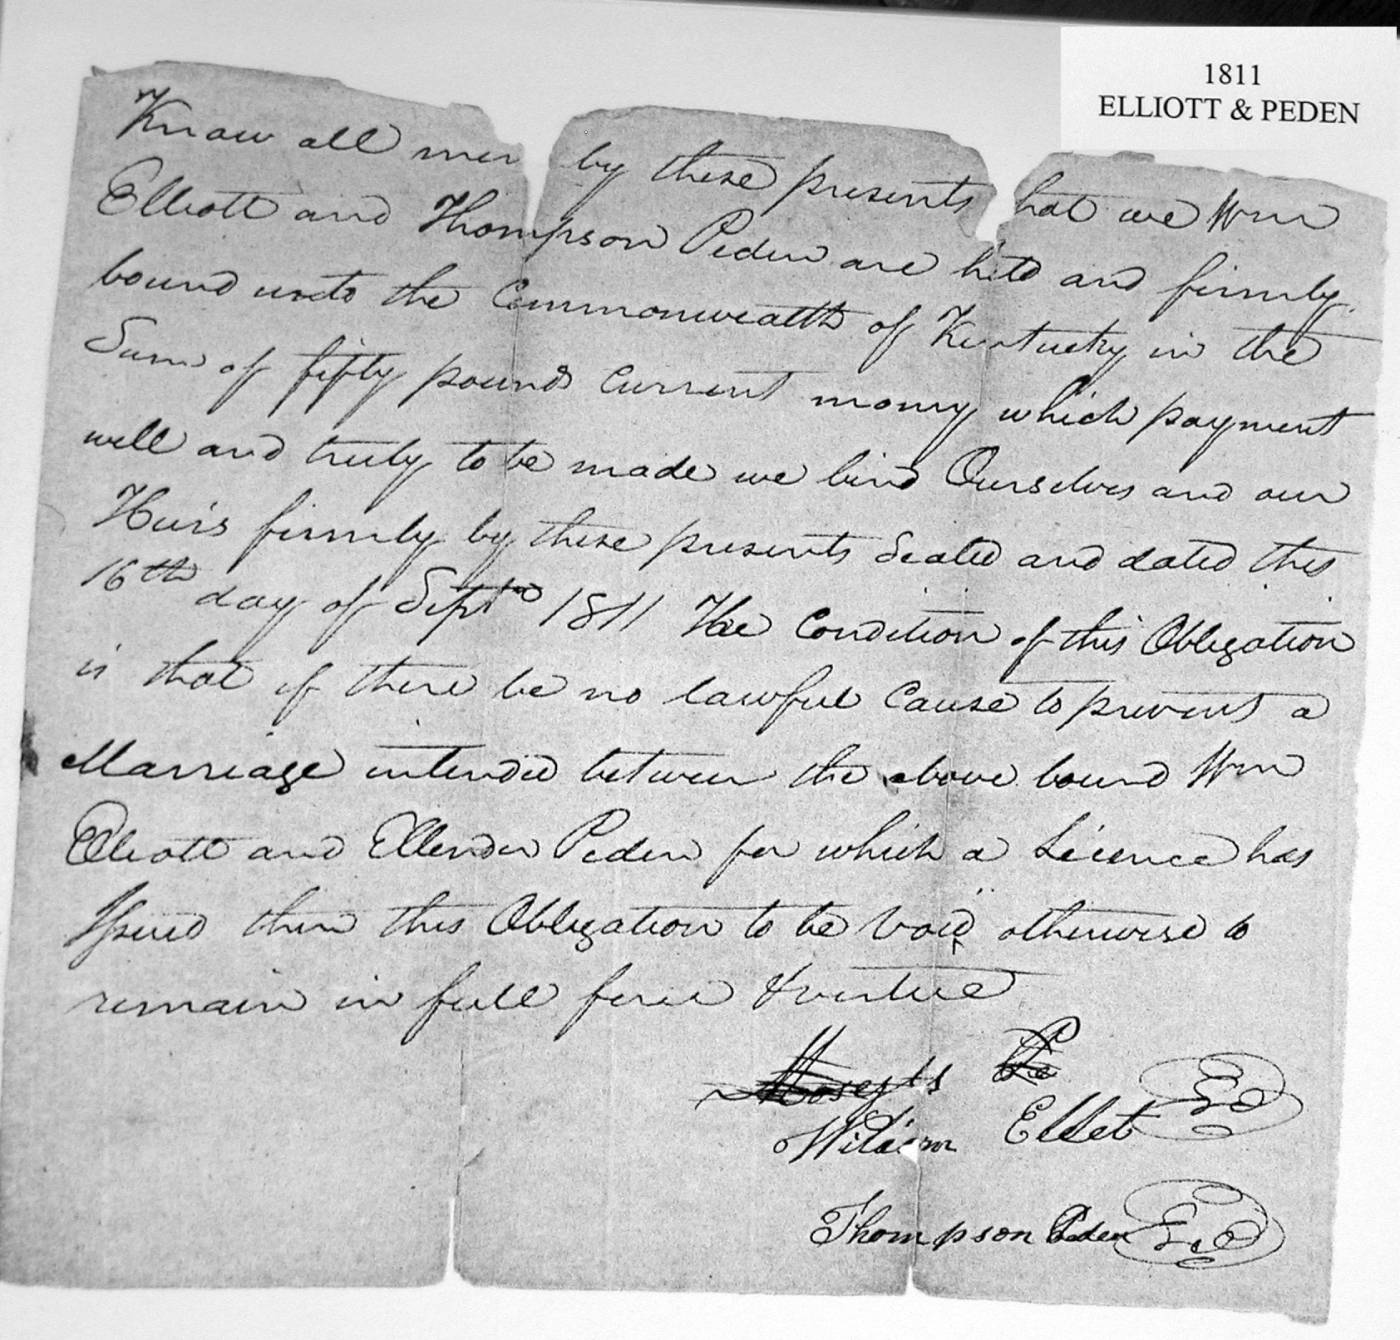 1811
ELLIOTT & PEDEN
Know all men by these presents that we Wm
Elliott and Thompson Peden are held and firmly
bound unto the Commonwealth of Kentucky in the
Sum of fifty pounds Current money which payment
well and truly to be made we bind Ourselves and our
Heirs firmly by these presents Sealed and dated this
16th day of Septr 1811 The Condition of this Obligation
is that if there be no lawful Cause to prevent a
Marriage intended between the above bound Wm
Elliott and Ellender Peden for which a Licence has
Issued then this Obligation to be Void otherwise to
remain in full force & virtue
William Ellet
Thompson Peden